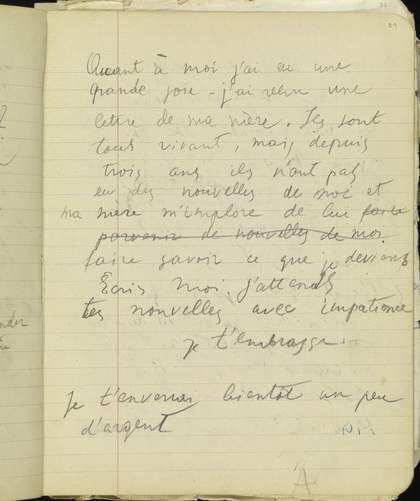 Quant à moi j'ai eu une
grande joie - j'ai reçu une
lettre de ma mère. Ils sont
tous vivant, mais depuis
trois ans ils n'ont pas
eu des nouvelles de moi et
ma mère m'implore de lui faire
parvenir de nouvelles de moi
faire savoir ce que je deviens
Ecris moi. j'attends
tes nouvelles avec impatience
je t'embrasse.
Je t'enverrai bientôt un peu
d'argent